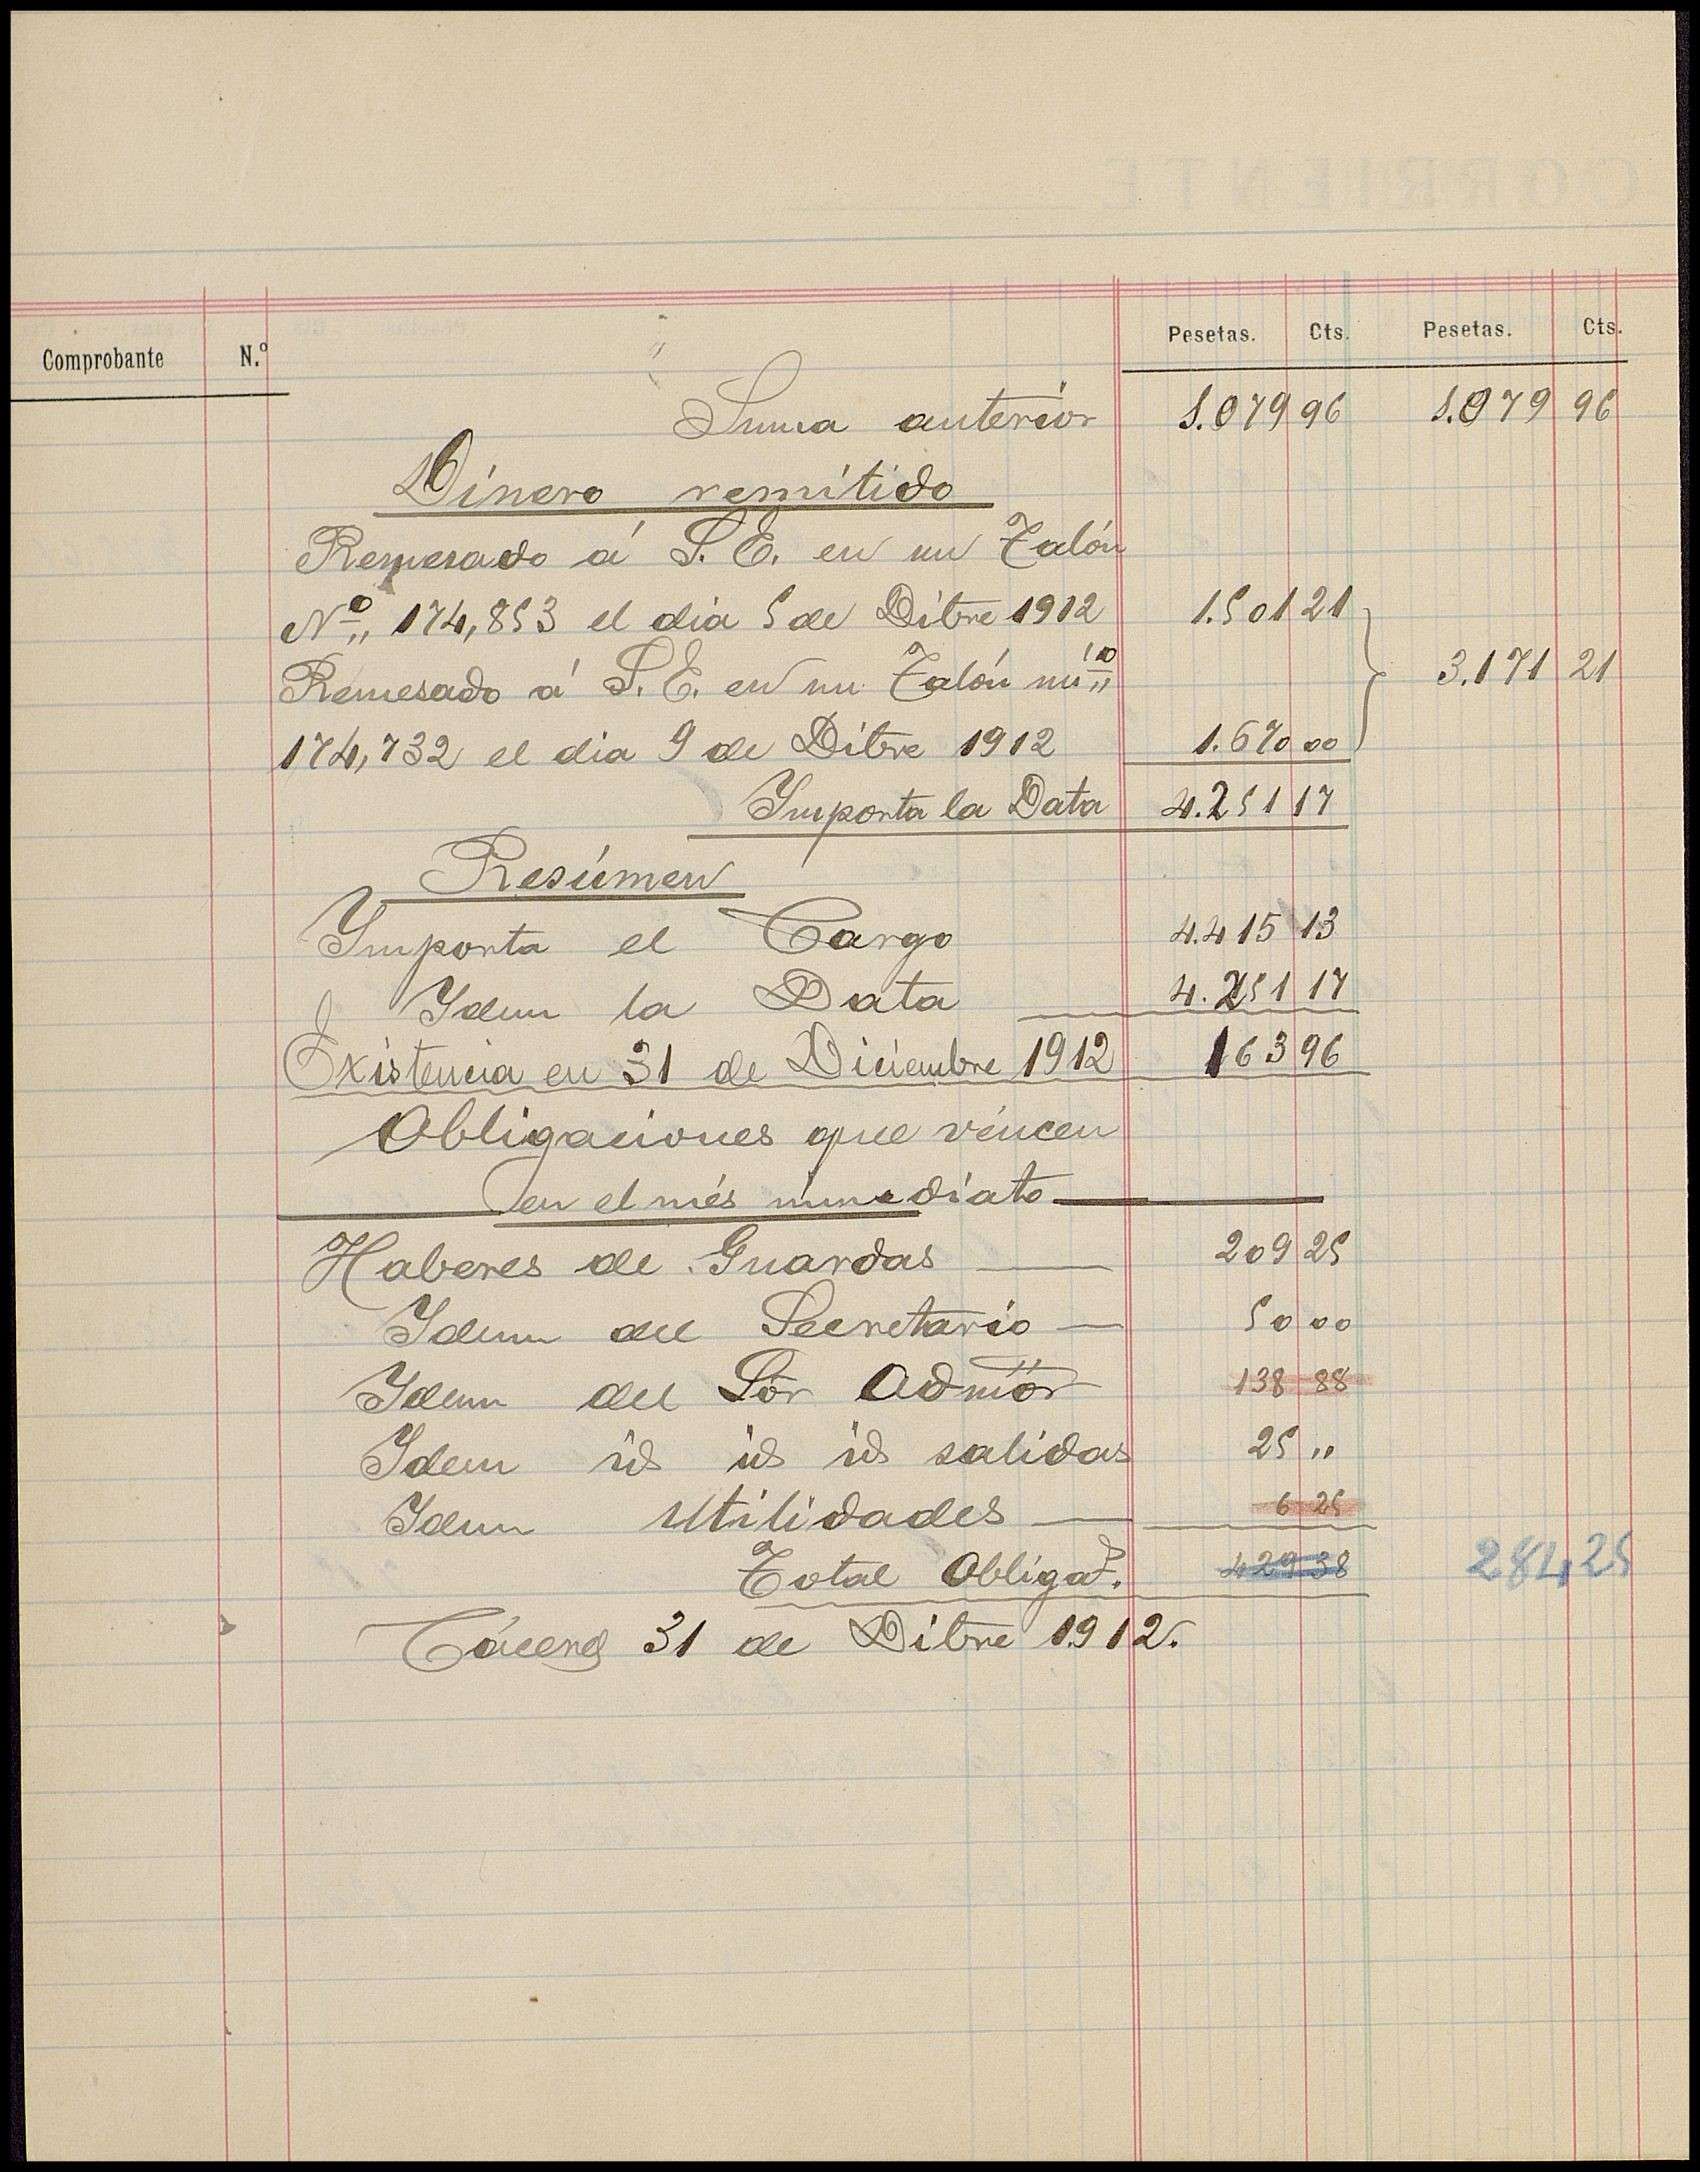 CORRIENTE
Comprobante N.º Pesetas. Cts. Pesetas. Cts.
Suma anterior 1.079 96 1.079 96
Dinero remitido
Remesado á S. E. en un Talón
Nº 174,853 el dia 5 de Ditbre 1912 1.501 21
3.171 21
Remesado á S. E. en un Talón núº
174,732 el dia 9 de Ditbre 1912 1.670 00
Importa la Data 4.251 17
Resúmen
Importa el Cargo 4.415 13
Idem la Data 4.251 17
Existencia en 31 de Diciembre 1912 163 96
Obligaciones que véncen
en el més inmediato
Haberes de Guardas 209 25
Idem del Secretario 50 00
Idem del Sör Admör 138 88
Idem id id id salidas 25 "
Idem Utilidades 6 25
Total Obligas. 429 38 284 25
Cáceres 31 de Ditbre 1912.